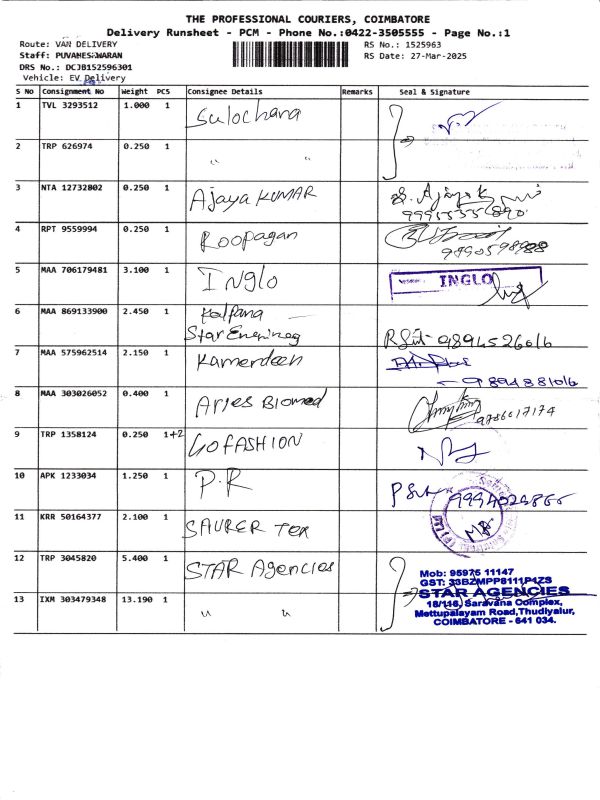 THE PROFESSIONAL COURIERS, COIMBATORE
Delivery Runsheet - PCM - Phone No.:0422-3505555 - Page No.:1
Route: VAN DELIVERY RS No.: 1525963
Staff: PUVANESWARAN RS Date: 27-Mar-2025
DRS No.: DCJB152596301
Vehicle: EV Delivery
S No Consignment No Weight PCS Consignee Details Remarks Seal & Signature
1 TVL 3293512 1.000 1 Sulochana
2 TRP 626974 0.250 1 " "
3 NTA 12732802 0.250 1 Ajaya KUMAR
4 RPT 9559994 0.250 1 Roopagan
5 MAA 706179481 3.100 1 Inglo INGLO
6 MAA 869133900 2.450 1 Kalpana
Star
7 MAA 575962514 2.150 1 Kamerdeen
8 MAA 303026052 0.400 1 Aries Biomed
9 TRP 1358124 0.250 1+2 GOFASHION
10 APK 1233034 1.250 1 P.R
11 KRR 50164377 2.100 1 SAURER Tex
12 TRP 3045820 5.400 1 STAR Agencies
Mob: 95975 11147
GST: 33BZMPP8111P1ZS
STAR AGENCIES
13 IXM 303479348 13.190 1 " "
18/116, Saravana Complex,
Mettupalayam Road, Thudiyalur,
COIMBATORE - 641 034.